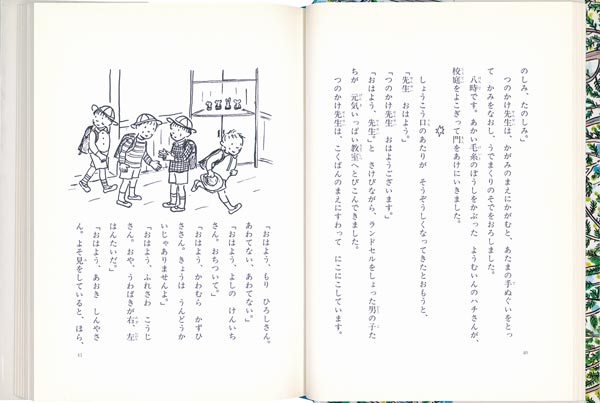 のしみ、たのしみ。」
つのかけ先生は、かがみのまえにかがむと、あたまの手ぬぐいをとっ
て かみをなおし、うでまくりのそでをおろしました。
八時です。あかい毛糸のぼうしをかぶった ようむいんのハチさんが、
校庭をよこぎって門をあけにいきました。
しょうこう口のあたりが そうぞうしくなってきたとおもうと、
「先生 おはよう。」
「つのかけ先生 おはようございます。」
「おはよう、先生。」と さけびながら、ランドセルをしょった男の子た
ちが 元気いっぱい教室へとびこんできました。
つのかけ先生は、こくばんのまえにすわって にこにこしています。
40
「おはよう、もり ひろしさん。
あわてない、あわてない。」
「おはよう、よしの けんいち
さん。おちついて。」
「おはよう、かわむら かずひ
ささん。きょうは うんどうか
いじゃありませんよ。」
「おはよう、ふれさわ こうじ
さん。おや、うわばきが右、左
はんたいだ。」
「おはよう、あおき しんやさ
ん。よそ見をしていると、ほら、
41